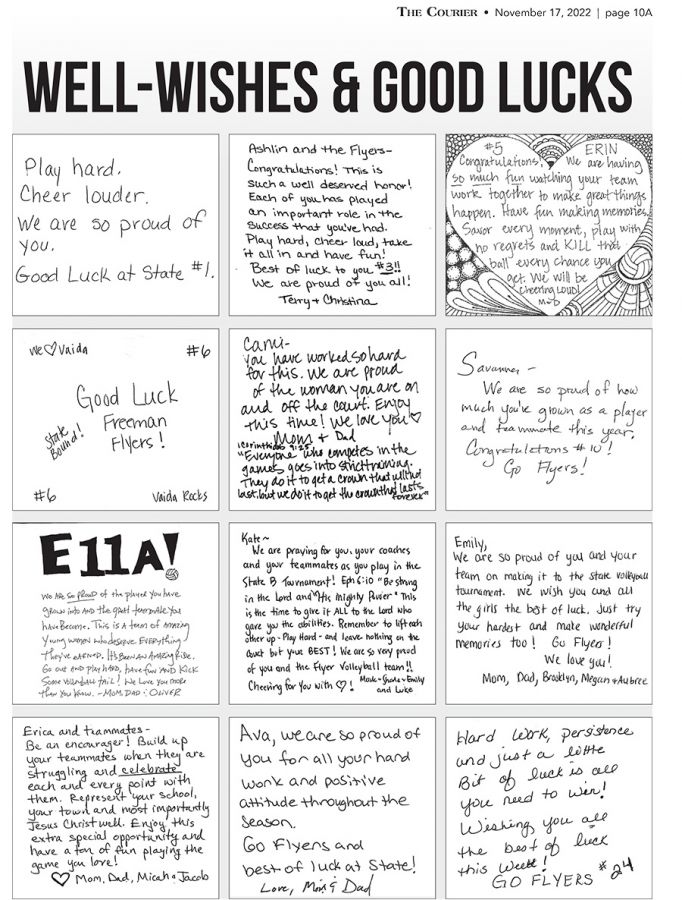 THE COURIER • November 17, 2022 | page 10A
WELL-WISHES & GOOD LUCKS
Play hard.
Cheer louder.
We are so proud of
you.
Good Luck at State #1.
Ashlin and the Flyers-
Congratulations! This is
such a well deserved honor!
Each of you has played
an important role in the
success that you've had.
Play hard, cheer loud, take
it all in and have fun!
Best of luck to you #3!!
We are proud of you all!
Terry + Christina
#5 ERIN
Congratulations! We are having
so much fun watching your team
work together to make great things
happen. Have fun making memories.
Savor every moment, play with
no regrets and KILL that
ball every chance you
get. We will be
cheering loud!
M+D
We ♡ Vaida #6
Good Luck
Freeman
Flyers!
State
Bound!
#6 Vaida Rocks
Cami-
You have worked so hard
for this. We are proud
of the woman you are on
and off the court. Enjoy
this time! We love you ♡
Mom + Dad
1 Corinthians 9:25
"Everyone who competes in the
games goes into strict training.
They do it to get a crown that will not
last, but we do it to get the crown that lasts
forever"
Savanna -
We are so proud of how
much you've grown as a player
and teammate this year.
Congratulations #10!
Go Flyers!
E11A!
We are so proud of the player you have
grown into and the great teammate you
have become. This is a team of amazing
young women who deserve everything
they've earned. It's been an amazing ride.
Go out and play hard, have fun and kick
some volleyball tail! We love you more
than you know. -Mom, Dad & Oliver
Kate~
We are praying for you, your coaches
and your teammates as you play in the
State B Tournament! Eph 6:10 "Be strong
in the Lord and His mighty Power" This
is the time to give it ALL to the Lord who
gave you the abilities. Remember to lift each
other up - Play Hard - and leave nothing on the
court but your BEST! We are so very proud
of you and the Flyer Volleyball team!!
Cheering for You with ♡! Mark - Jade - Emily
and Luke
Emily,
We are so proud of you and your
team on making it to the state volleyball
tournament. We wish you and all
the girls the best of luck. Just try
your hardest and make wonderful
memories too! Go Flyers!
We love you!
Mom, Dad, Brooklyn, Megan + Aubree
Erica and teammates -
Be an encourager! Build up
your teammates when they are
struggling and celebrate
each and every point with
them. Represent your school,
your town and most importantly
Jesus Christ well. Enjoy this
extra special opportunity and
have a ton of fun playing the
game you love!
♡ Mom, Dad, Micah + Jacob
Ava, we are so proud of
you for all your hard
work and positive
attitude throughout the
season.
Go Flyers and
best of luck at State!
Love, Mom & Dad
Hard work, persistence
and just a little
Bit of luck is all
you need to win!
Wishing you all
the best of luck
this week!
GO FLYERS #24